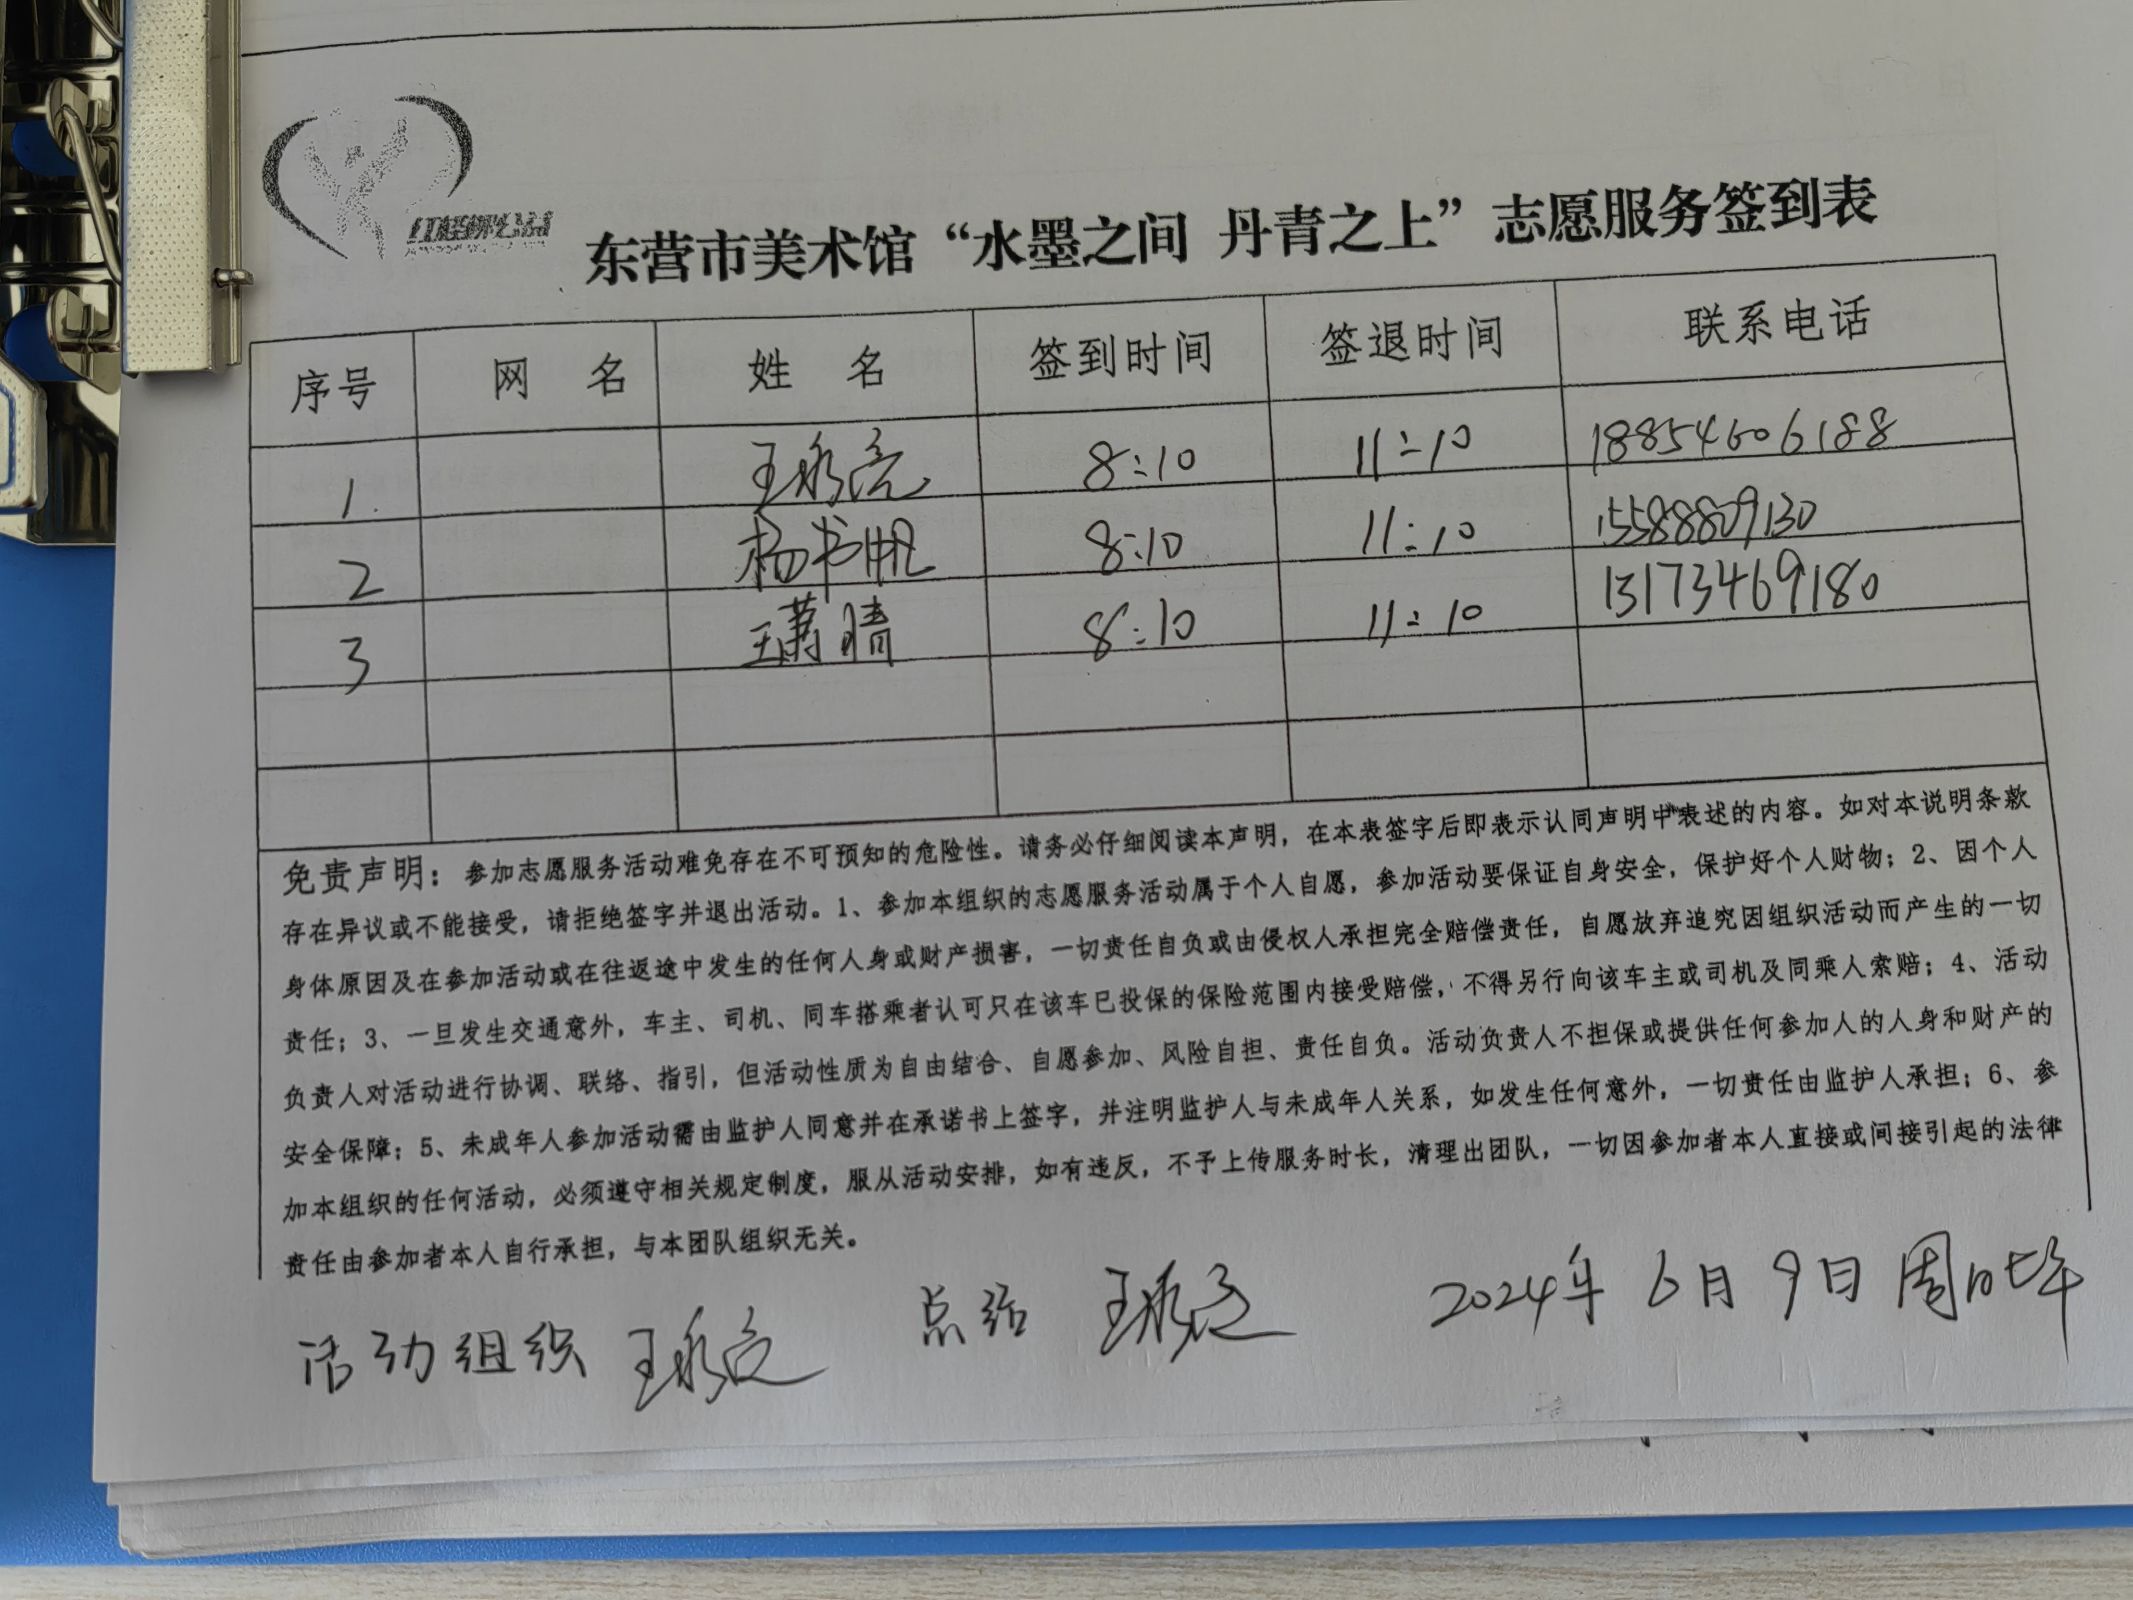 东营市美术馆“水墨之间 丹青之上”志愿服务签到表
序号 网 名 姓 名 签到时间 签退时间 联系电话
1. 王永亮 8:10 11:10 18854606188
2 杨书帆 8:10 11:10 15588809130
3 王潇晴 8:10 11:10 13173469180
免责声明：参加志愿服务活动难免存在不可预知的危险性。请务必仔细阅读本声明，在本表签字后即表示认同声明中表述的内容。如对本说明条款
存在异议或不能接受，请拒绝签字并退出活动。1、参加本组织的志愿服务活动属于个人自愿，参加活动要保证自身安全，保护好个人财物；2、因个人
身体原因及在参加活动或在往返途中发生的任何人身或财产损害，一切责任自负或由侵权人承担完全赔偿责任，自愿放弃追究因组织活动而产生的一切
责任；3、一旦发生交通意外，车主、司机、同车搭乘者认可只在该车已投保的保险范围内接受赔偿，不得另行向该车主或司机及同乘人索赔；4、活动
负责人对活动进行协调、联络、指引，但活动性质为自由结合、自愿参加、风险自担、责任自负。活动负责人不担保或提供任何参加人的人身和财产的
安全保障；5、未成年人参加活动需由监护人同意并在承诺书上签字，并注明监护人与未成年人关系，如发生任何意外，一切责任由监护人承担；6、参
加本组织的任何活动，必须遵守相关规定制度，服从活动安排，如有违反，不予上传服务时长，清理出团队，一切因参加者本人直接或间接引起的法律
责任由参加者本人自行承担，与本团队组织无关。
活动组织 王永亮 总结 王永亮 2024年6月9日 周日上午